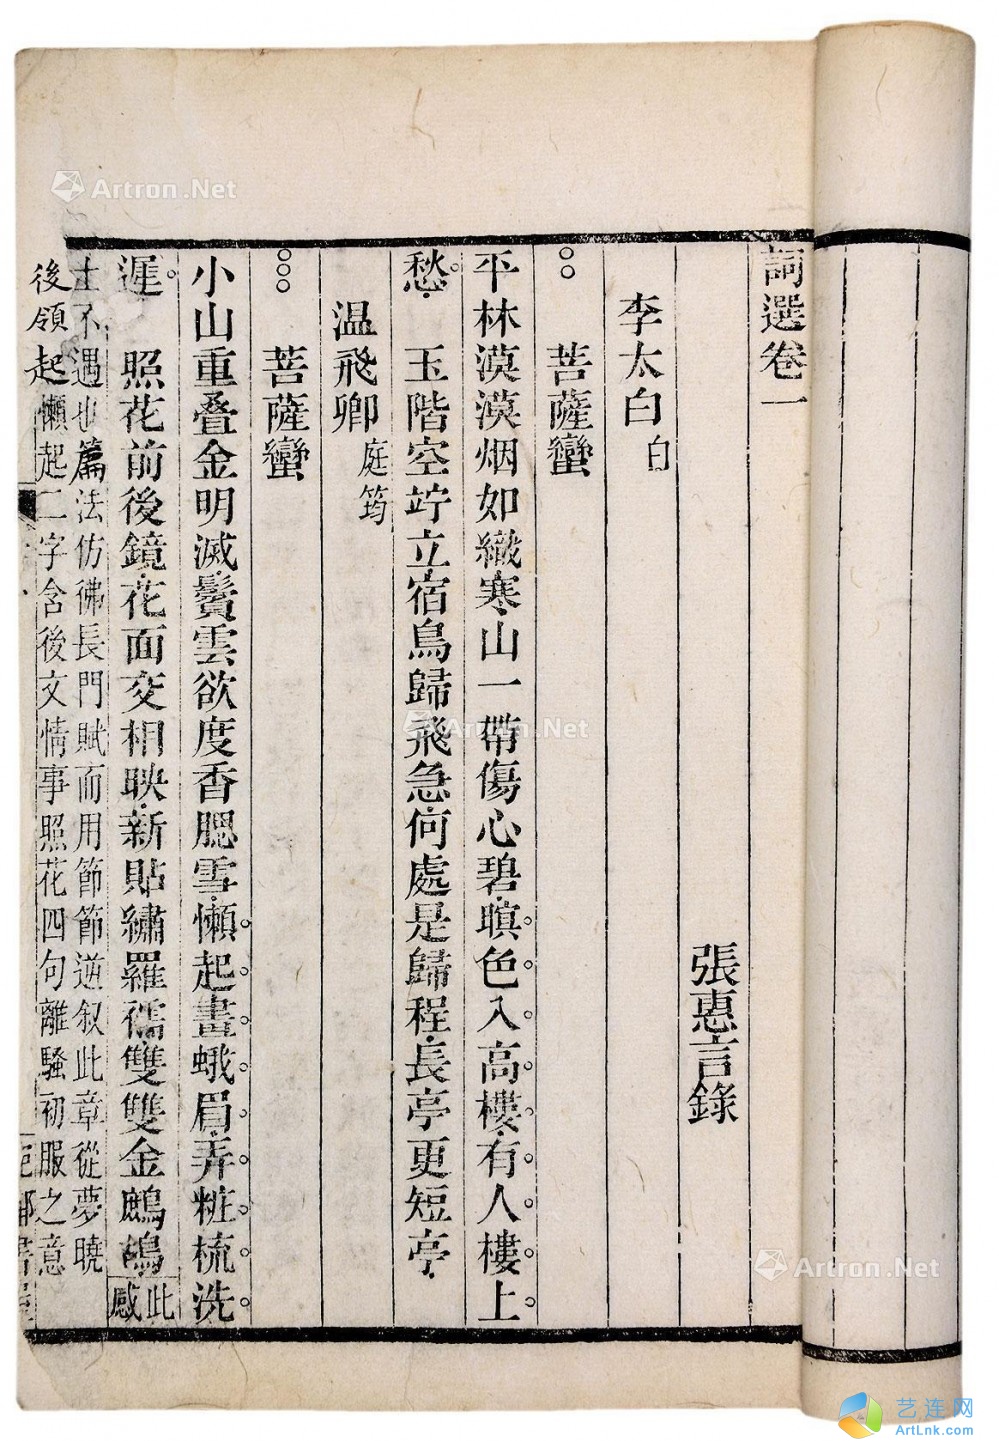 詞選卷一
張惠言錄
李太白白
菩薩蠻
平林漠漠烟如織寒山一帶傷心碧暝色入高樓有人樓上
愁　玉階空竚立宿鳥歸飛急何處是歸程長亭更短亭
温飛卿庭筠
菩薩蠻
小山重叠金明滅鬢雲欲度香腮雪懶起畫蛾眉弄粧梳洗
遲　照花前後鏡花面交相映新貼繡羅襦雙雙金鷓鴣此感
士不遇也篇法仿彿長門賦而用節節逆叙此章從夢曉
後領起懶起二字含後文情事照花四句離騷初服之意
Artron.Net
Artron.Net
Artron.Net
艺连网
ArtLnk.com